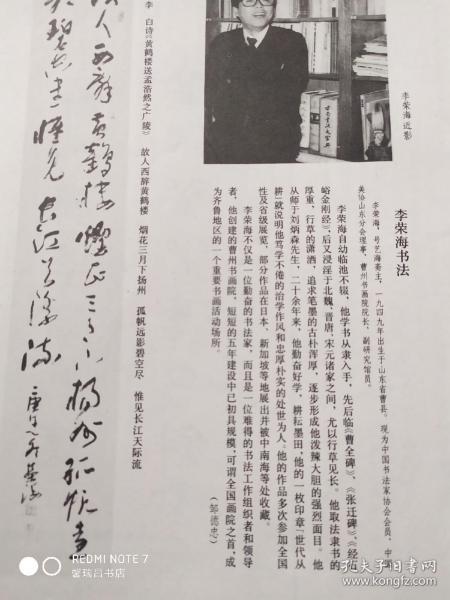 李荣海近影
李荣海书法
李荣海，号艺海斋主，一九四九年出生于山东省曹县。现为中国书法家协会会员，中
美协山东分会理事，曹州书画院院长，副研究馆员。
李荣海自幼临池不辍，他学书从隶入手，先后临《曹全碑》、《张迁碑》、《经石
峪金刚经》，后又浸淫于北魏、晋唐、宋元诸家之间，尤以行草见长。他取法隶书的
厚重，行草的潇洒，追求笔墨的古朴浑厚，逐步形成他泼辣大胆的强烈面目。他
从师于刘炳森先生，二十余年来，他勤奋好学，耕耘墨田，他的一枚印章「世代从
耕」就说明他笃学不倦的治学作风和忠厚朴实的处世为人。他的作品多次参加全国
性及省级展览，部分作品在日本、新加坡等地展出并被中南海等处收藏。
李荣海不仅是一位勤奋的书法家，而且是一位难得的书法工作组织者和领导
者，他创建的曹州书画院，短短的五年建设中已初具规模，可谓全国画院之首，成
为齐鲁地区的一个重要书画活动场所。
（邹德忠）
李 白诗《黄鹤楼送孟浩然之广陵》 故人西辞黄鹤楼 烟花三月下扬州 孤帆远影碧空尽 惟见长江天际流
故人西辞黄鹤楼烟花三月下扬州孤帆远
影碧空尽惟见长江天际流
REDMI NOTE 7
馨瑞吕书店
孔夫子旧书网